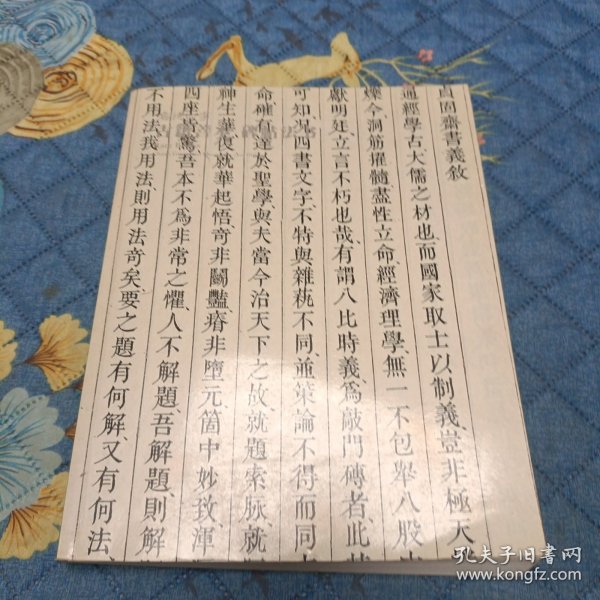 貞固齋書義敘
通經學古、大儒之材也而國家取士以制義、豈非極天
燦今、洞筋擢髓、盡性立命、經濟理學、無一不包舉八股
獻明廷、立言不朽也哉、有謂八比時義、爲敲門磚者、此
可知、况四書文字、不特與雜蓺不同、並策論不得而同
命確有逹於聖學與夫當今治天下之故、就題索脉、就
神生華、復就華起悟奇非鬭豔、瘠非墮元、箇中妙致、渾
四座皆驚、吾本不爲非常之懼、人不解題、吾解題、則解
不用法、我用法、則用法奇矣、要之題有何解、又有何法、
孔夫子旧書网
www.kongfz.com